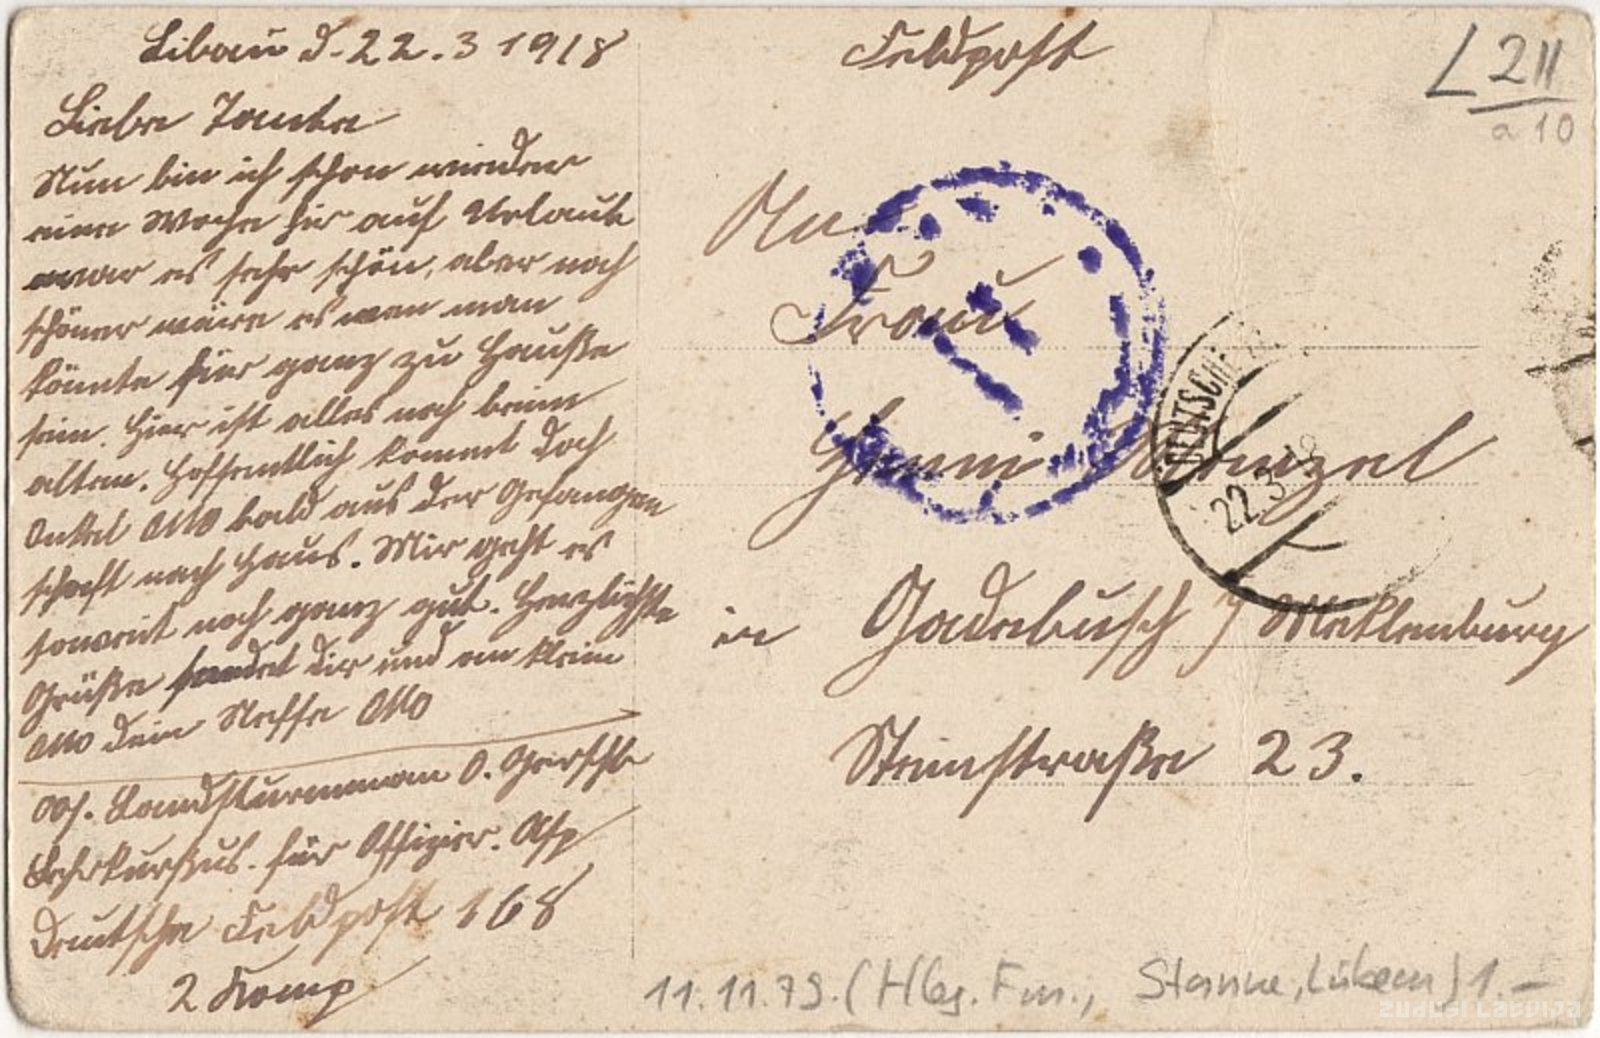 Libau d. 22.3 1918
Liebe Tante
Nun bin ich schon wieder
eine Woche hir auf Urlaub
war es sehr schön, aber noch
schöner wäre es wen man
könnte hier ganz zu Hauße
sein. Hier ist alles noch beim
alten. Hoffentlich kommt doch
Onkel Otto bald aus der Gefangen
schaft nach Haus. Mir geht es
soweit noch ganz gut. Herzlichste
Grüße sendet dir und en klein
Otto dein Neffe Otto
Abs. Landsturmmann O.
Lehrkursus für Offizier. Asp
Deutsche Feldpost 168
2 Komp
Feldpost
An
Frau
Henzel
in Gadebusch i/ Meklenburg
Steinstraße 23.
L 211
a 10
DEUTSCHE
22.3.18
11.11.79. (Hbg. Fm., Stanne, Lübeck) 1.-
zudusi Latvija